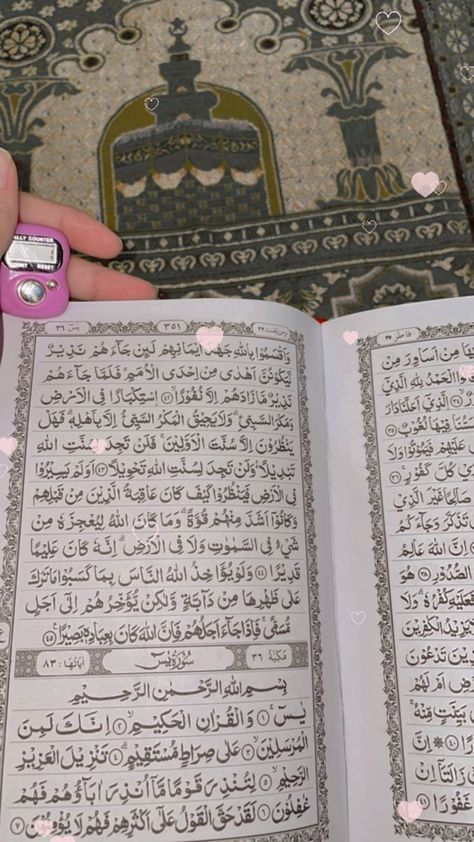 ALLY COUNTER
COUNT RESET
يس ٣٦
٣٥١
ومن يقنت ٢٢
وَاَقْسَمُوْا بِاللّٰهِ جَهْدَ اَيْمَانِهِمْ لَىِٕنْ جَاۤءَهُمْ نَذِيْرٌ
لَّيَكُوْنُنَّ اَهْدٰى مِنْ اِحْدَى الْاُمَمِۚ فَلَمَّا جَاۤءَهُمْ
نَذِيْرٌ مَّا زَادَهُمْ اِلَّا نُفُوْرًاۙ ﴿٤٢﴾ اِسْتِكْبَارًا فِى الْاَرْضِ
وَمَكْرَ السَّيِّئِۗ وَلَا يَحِيْقُ الْمَكْرُ السَّيِّئُ اِلَّا بِاَهْلِهٖۗ فَهَلْ
يَنْظُرُوْنَ اِلَّا سُنَّتَ الْاَوَّلِيْنَۚ فَلَنْ تَجِدَ لِسُنَّتِ اللّٰهِ
تَبْدِيْلًا ەۚ وَلَنْ تَجِدَ لِسُنَّتِ اللّٰهِ تَحْوِيْلًا ﴿٤٣﴾ اَوَلَمْ يَسِيْرُوْا
فِى الْاَرْضِ فَيَنْظُرُوْا كَيْفَ كَانَ عَاقِبَةُ الَّذِيْنَ مِنْ قَبْلِهِمْ
وَكَانُوْٓا اَشَدَّ مِنْهُمْ قُوَّةًۗ وَمَا كَانَ اللّٰهُ لِيُعْجِزَهٗ مِنْ
شَيْءٍ فِى السَّمٰوٰتِ وَلَا فِى الْاَرْضِۗ اِنَّهٗ كَانَ عَلِيْمًا
قَدِيْرًا ﴿٤٤﴾ وَلَوْ يُؤَاخِذُ اللّٰهُ النَّاسَ بِمَا كَسَبُوْا مَا تَرَكَ
عَلٰى ظَهْرِهَا مِنْ دَاۤبَّةٍ وَّلٰكِنْ يُّؤَخِّرُهُمْ اِلٰٓى اَجَلٍ
مُّسَمًّىۚ فَاِذَا جَاۤءَ اَجَلُهُمْ فَاِنَّ اللّٰهَ كَانَ بِعِبَادِهٖ بَصِيْرًا ﴿٤٥﴾
مكية ٣٦ سُوْرَةُ يٰسٓ آياتها ٨٣
بِسْمِ اللّٰهِ الرَّحْمٰنِ الرَّحِيْمِ
يٰسۤ ﴿١﴾ وَالْقُرْاٰنِ الْحَكِيْمِ ﴿٢﴾ اِنَّكَ لَمِنَ
الْمُرْسَلِيْنَ ﴿٣﴾ عَلٰى صِرَاطٍ مُّسْتَقِيْمٍ ﴿٤﴾ تَنْزِيْلَ الْعَزِيْزِ
الرَّحِيْمِ ﴿٥﴾ لِتُنْذِرَ قَوْمًا مَّآ اُنْذِرَ اٰبَاۤؤُهُمْ فَهُمْ
غٰفِلُوْنَ ﴿٦﴾ لَقَدْ حَقَّ الْقَوْلُ عَلٰٓى اَكْثَرِهِمْ فَهُمْ لَا يُؤْمِنُوْنَ ﴿٧﴾
فاطر ٣٥
مِنْ اَسَاوِرَ مِنْ
الْحَمْدُ لِلّٰهِ الَّذِيْٓ
الَّذِيْٓ اَحَلَّنَا دَارَ
فِيْهَا لُغُوْبٌ
عَلَيْهِمْ فَيَمُوْتُوْا وَلَا
كُلَّ كَفُوْرٍ
صَالِحًا غَيْرَ الَّذِيْ
تَذَكَّرَ وَجَاۤءَكُمُ
اِنَّ اللّٰهَ عَالِمُ
الصُّدُوْرِ ﴿٣٨﴾ هُوَ
فَعَلَيْهِ كُفْرُهٗۗ وَلَا
يَزِيْدُ الْكٰفِرِيْنَ
الَّذِيْنَ تَدْعُوْنَ
اَمْ لَهُمْ
بَيِّنَتٍ مِّنْهُۚ
اِنَّ
زَالَتَآ اِنْ
غَفُوْرًا ﴿٤١﴾